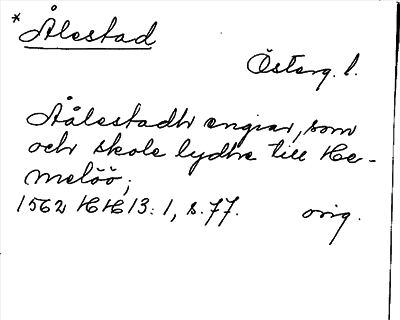 * Ålestad
Österg. l.
Aålestadh engiar, som
och skole lydhe till He-
melöö;
1562 HH 13:1, s. 77. orig.